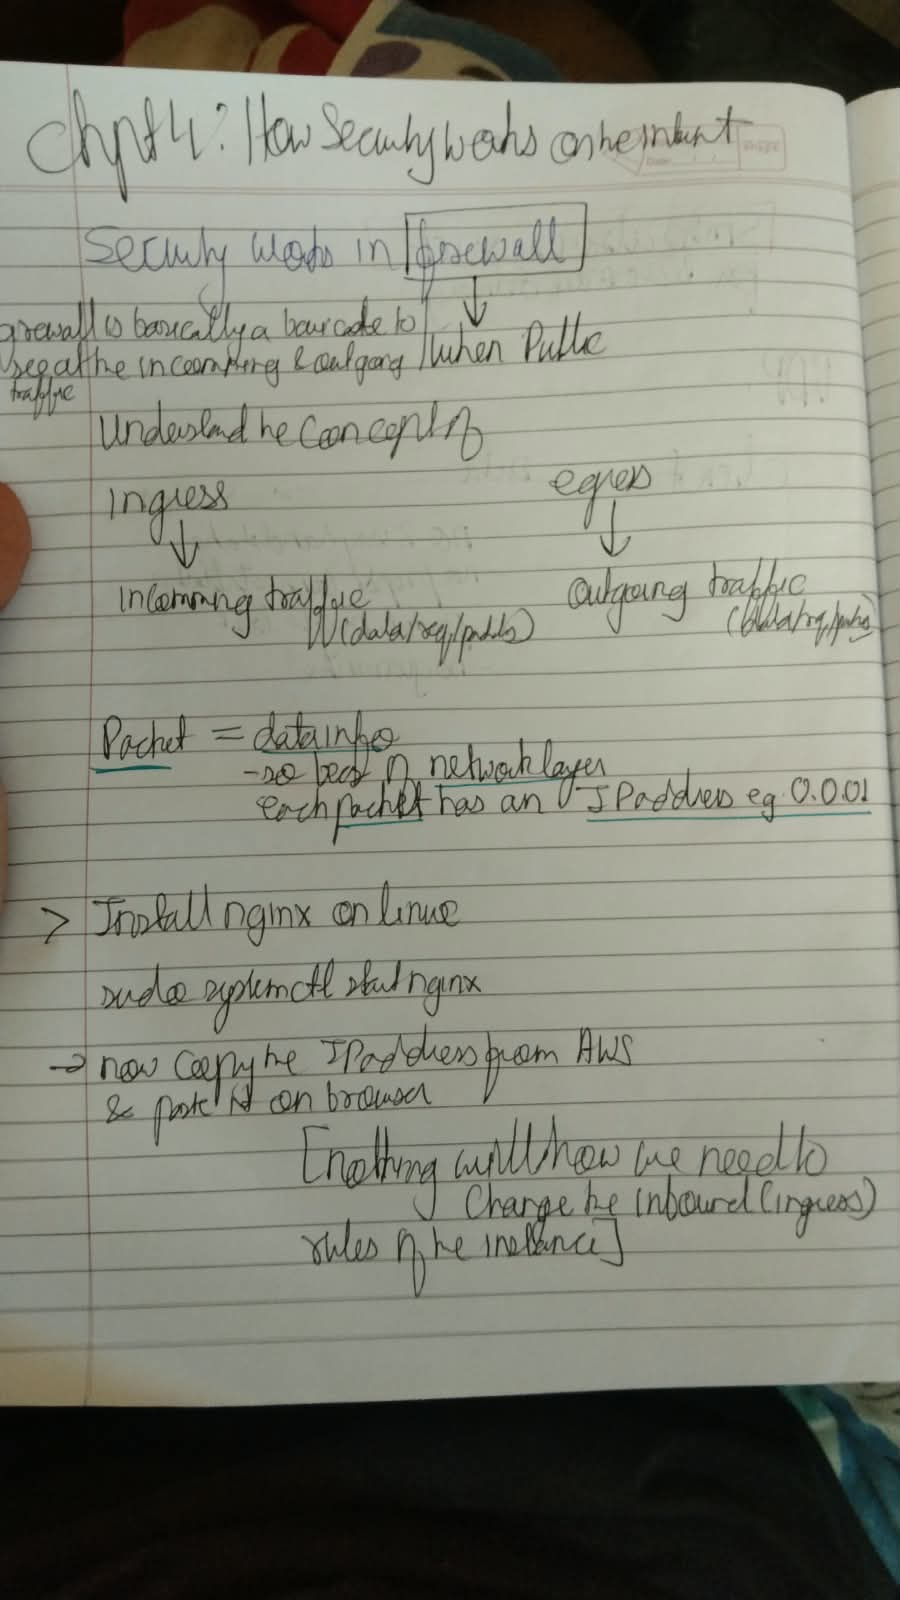 Chpt 4: How Security works on the internet
Security works in firewall
firewall is basically a baricade to
see at the incomming & outgong
traffic
when Public
Understand the concept of
Ingress
egress
Incomming traffic
(data/req/packts)
Outgoing traffic
(data/rq/packs)
Packet = data info
- so becz of network layer
each packet has an IP address eg. 0.0.01
> Install nginx on linux
sudo systemctl start nginx
→ now copy the IP address from AWS
& paste it on browser
[nothing will show we need to
Change the inbound (ingress)
rules of the instance]